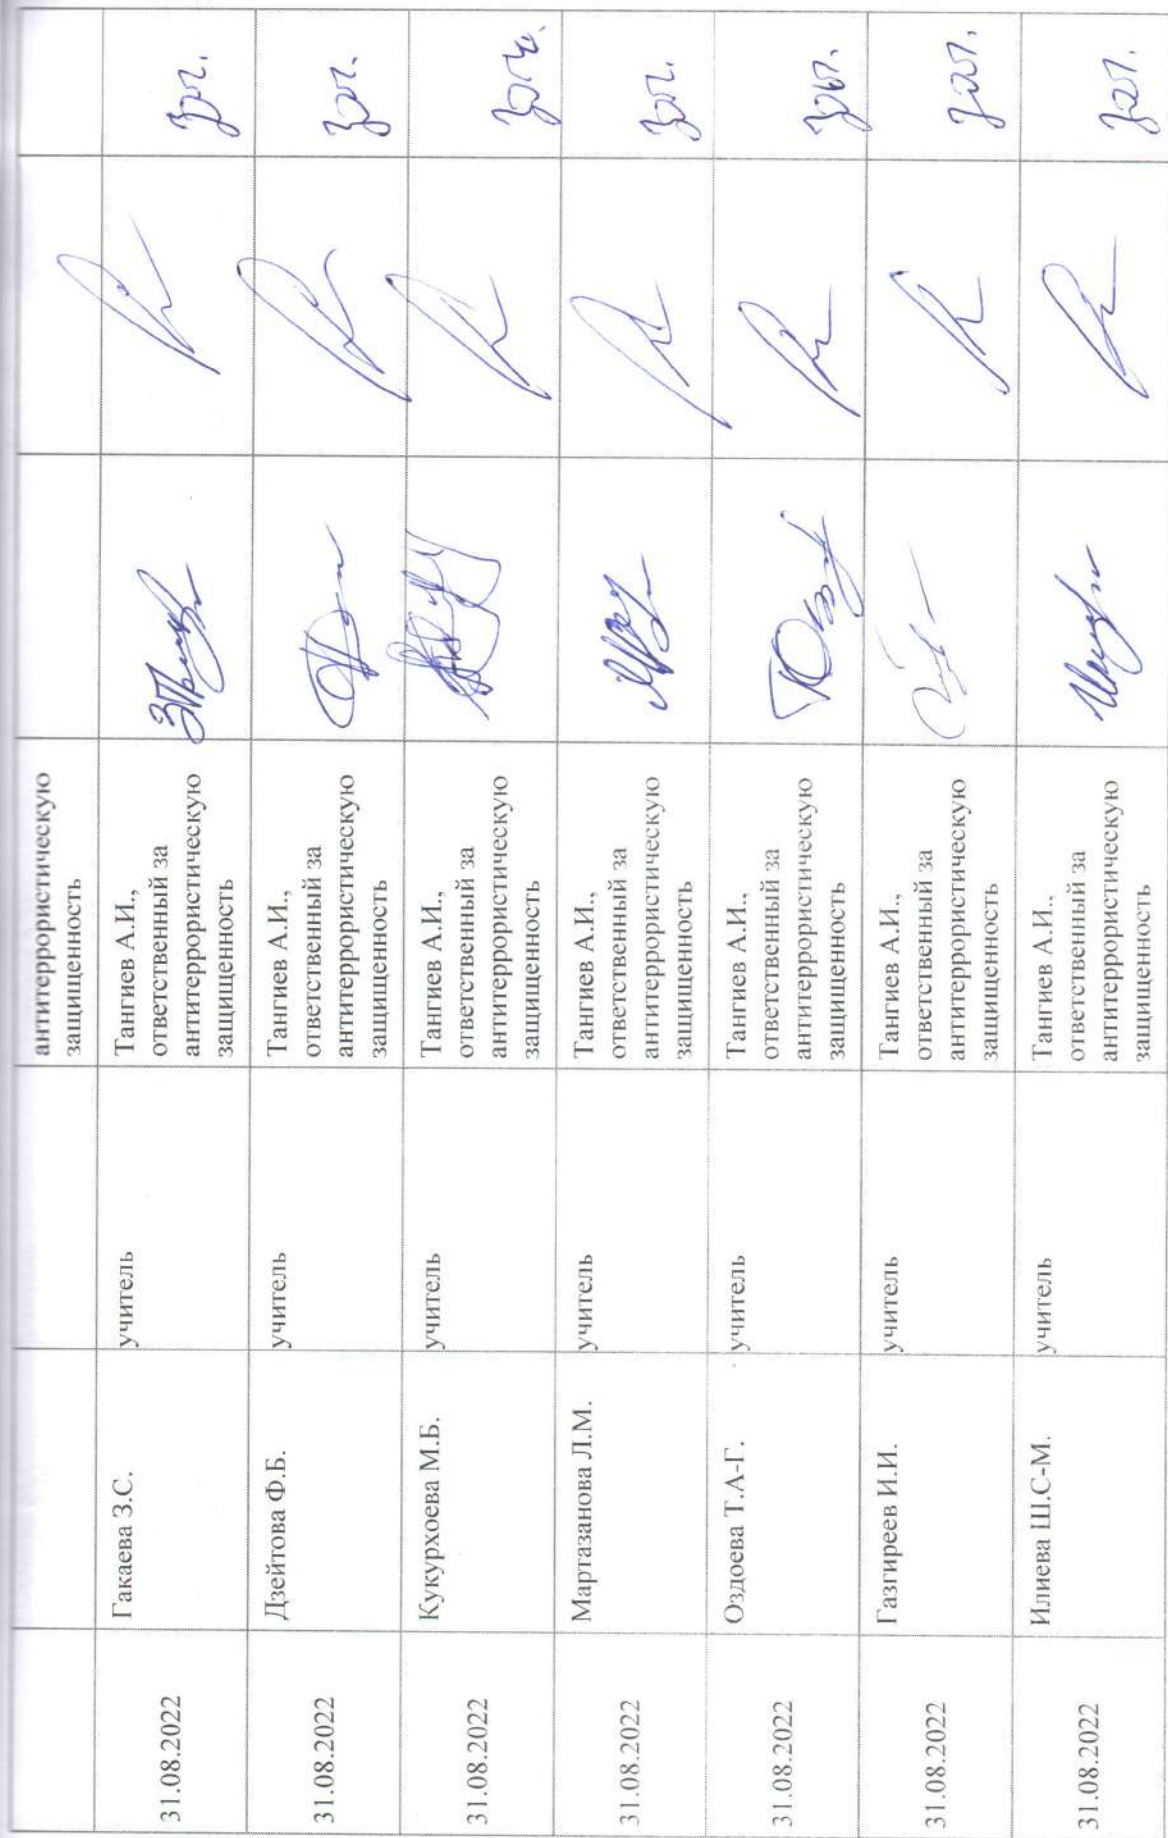 антитеррористическую
защищенность
31.08.2022
Гакаева З.С.
учитель
Тангиев А.И.,
ответственный за
антитеррористическую
защищенность
31.08.2022
Дзейтова Ф.Б.
учитель
Тангиев А.И.,
ответственный за
антитеррористическую
защищенность
31.08.2022
Кукурхоева М.Б.
учитель
Тангиев А.И.,
ответственный за
антитеррористическую
защищенность
31.08.2022
Мартазанова Л.М.
учитель
Тангиев А.И.,
ответственный за
антитеррористическую
защищенность
31.08.2022
Оздоева Т.А-Г.
учитель
Тангиев А.И.,
ответственный за
антитеррористическую
защищенность
31.08.2022
Газгиреев И.И.
учитель
Тангиев А.И.,
ответственный за
антитеррористическую
защищенность
31.08.2022
Илиева Ш.С-М.
учитель
Тангиев А.И.,
ответственный за
антитеррористическую
защищенность